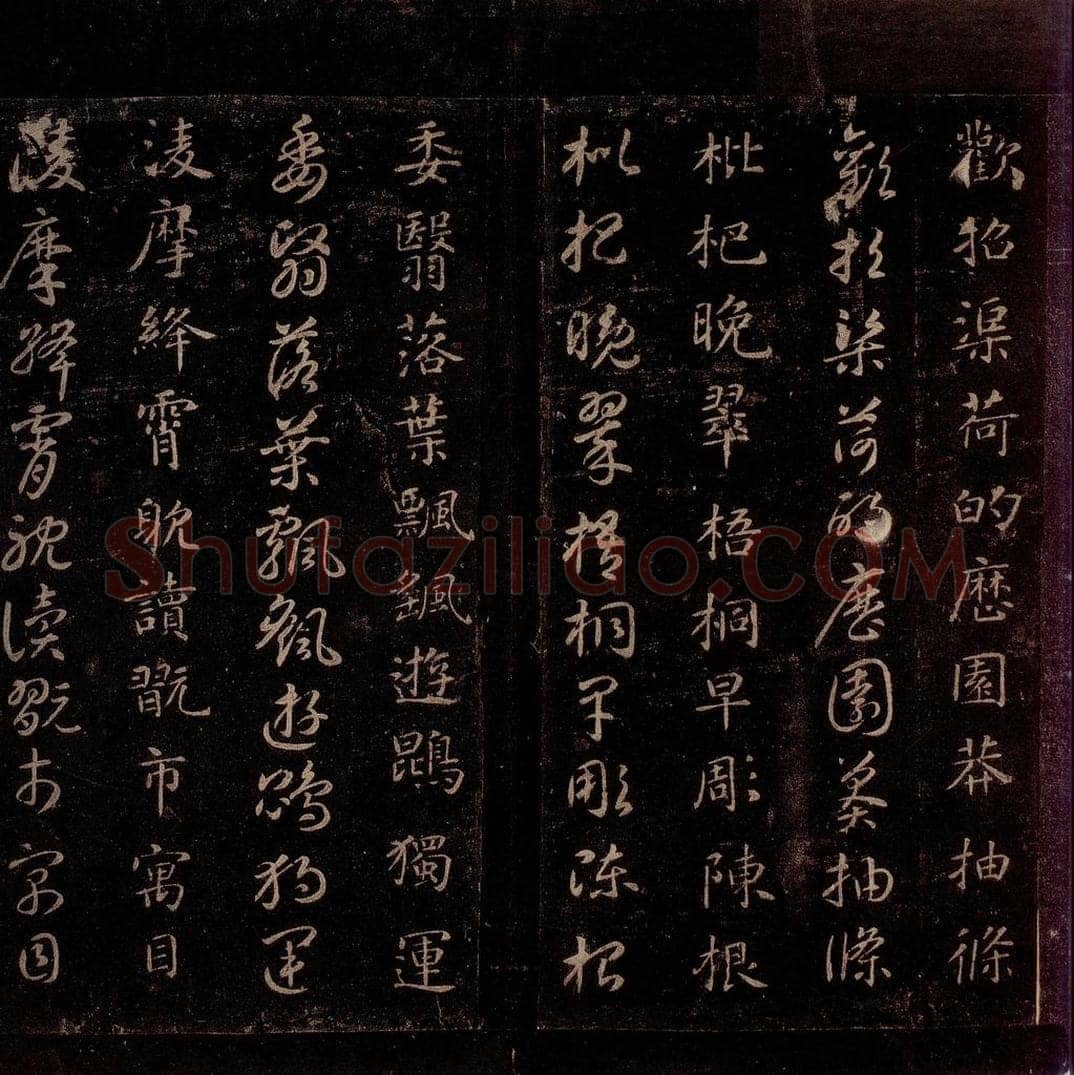 歡招渠荷的歷園莽抽條
歡招渠荷的歷園莽抽條
枇杷晚翠梧桐早彫陳根
枇杷晚翠梧桐早彫陳根
委翳落葉飄颻遊鵾獨運
委翳落葉飄颻遊鵾獨運
淩摩絳霄躭讀翫市寓目
淩摩絳霄躭讀翫市寓目
Shufaziliao.COM